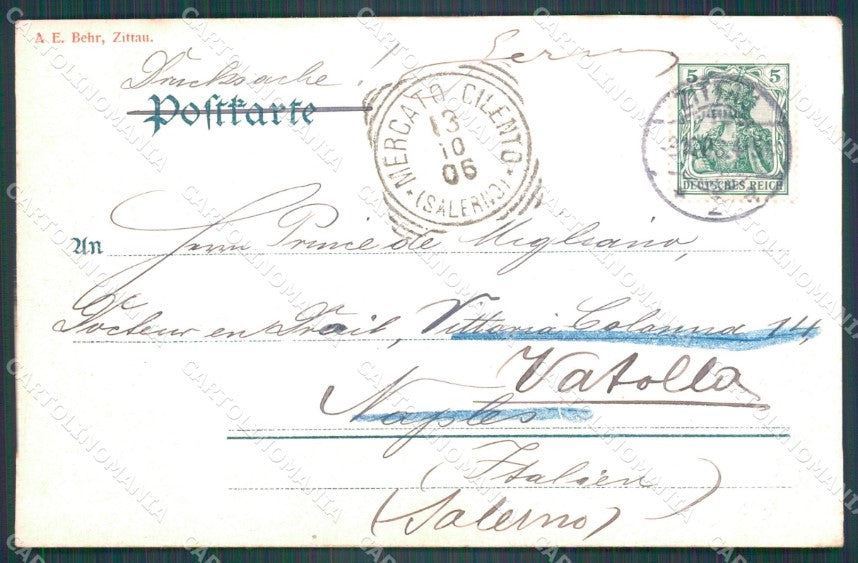 A. E. Behr, Zittau.
Drucksache.
Postkarte
MERCATO CILENTO
13
10
06
(SALERNO)
5 5
ZITTAU
DEUTSCHES REICH
An Herrn Prince de Migliano,
Docteur en Droit, Vittoria Colonna 14,
Vatolla
Naples
(Italien)
(Salerno)
CARTOLINOMANIA